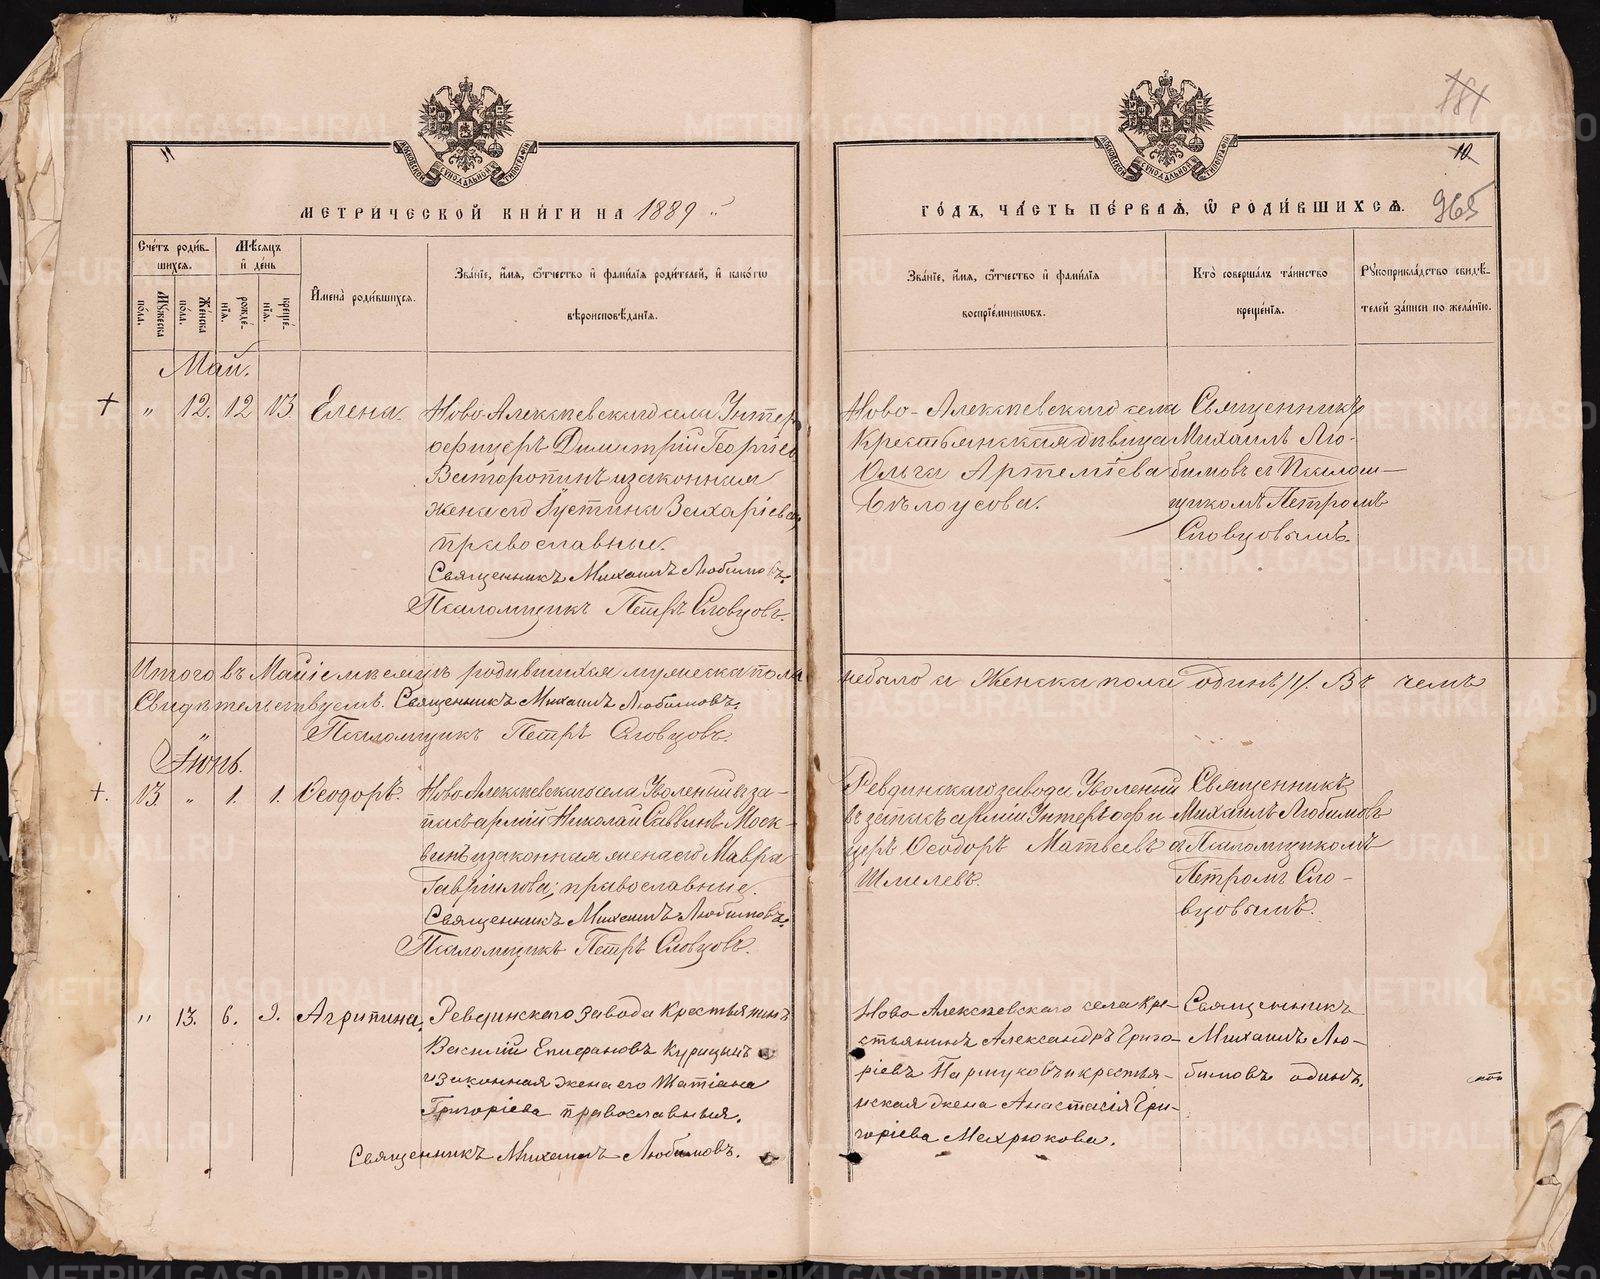 181
11
10
МОСКОВСКОЙ СѴНОДАЛЬНОЙ ТИПОГРАФІИ
МОСКОВСКОЙ СѴНОДАЛЬНОЙ ТИПОГРАФІИ
МЕТРИ́ЧЕСКОЙ КНИ́ГИ НА 1889
ГО́ДЪ, ЧА́СТЬ ПЕ́РВАЯ, Ѡ РОДИ́ВШИХСЯ.
965
Сче́тъ роди́в-
шихся.
Мѣ́сяцъ
и҆ де́нь
Му́жеска
по́ла.
Же́нска
по́ла.
рожде́-
нїя.
креще́-
нїя.
И҆мена̀ роди́вшихся.
Зва́нїе, и҆́мя, ѻ҆́тчество и҆ фами́лїя роди́телей, и҆ како́гѡ
вѣроисповѣ́данїя.
Зва́нїе, и҆́мя, ѻ҆́тчество и҆ фами́лїя
воспрїе́мникѡвъ.
Кто̀ соверша́лъ та́инство
креще́нїя.
Рꙋкоприкла́дство свидѣ́-
телей за́писи по жела́нїю.
Май.
+ " 12. 12 13. Елена.
Ново Алексѣевскаго села Унтер
офицеръ Димитрій Георгіев
Ваторопинъ и законная
жена его Іустина Захаріева,
православные.
Священникъ Михаилъ Любимовъ.
Псаломщикъ Петръ Словцовъ.
Ново-Алексѣевскаго села
Крестьянская дѣвица
Ольга Артеміева
Бѣлоусова.
Священникъ
Михаилъ Лю-
бимовъ съ Псалом-
щикомъ Петромъ
Словцовымъ.
Итого въ Маіѣ мѣсяцѣ родившихся мужеска пола небыло а Женска пола одинъ /1/. Въ чемъ
Свидѣтельствуемъ. Священникъ Михаилъ Любимовъ.
Псаломщикъ Петръ Словцовъ.
Іюнь.
+. 13. " 1. 1. Ѳеодоръ.
Ново Алексѣевскаго села Уволеный въ за-
пасъ арміи Николай Саввинъ Моск-
винъ и законная жена его Мавра
Гавріилова; православные.
Священникъ Михаилъ Любимовъ.
Псаломщикъ Петръ Словцовъ.
Ревдинскаго завода Уволеный
въ запасъ арміи Унтеръ офи
церъ Ѳеодоръ Матвеевъ
Шмелевъ.
Священникъ
Михаилъ Любимовъ
съ Псаломщикомъ
Петромъ Сло-
вцовымъ.
" 13. 6. 9. Агрипина,
Ревдинскаго завода Крестьянинъ
Василій Епифановъ Курицынъ
и законная жена его Татіана
Григоріева православныя.
Священникъ Михаилъ Любимовъ.
Ново Алексѣевскаго села Кре-
стьянинъ Александръ Григо-
ріевъ Паршуковъ и крестья-
нская жена Анастасія Гри-
горіева Мехрюкова.
Священникъ
Михаилъ Лю-
бимовъ одинъ.